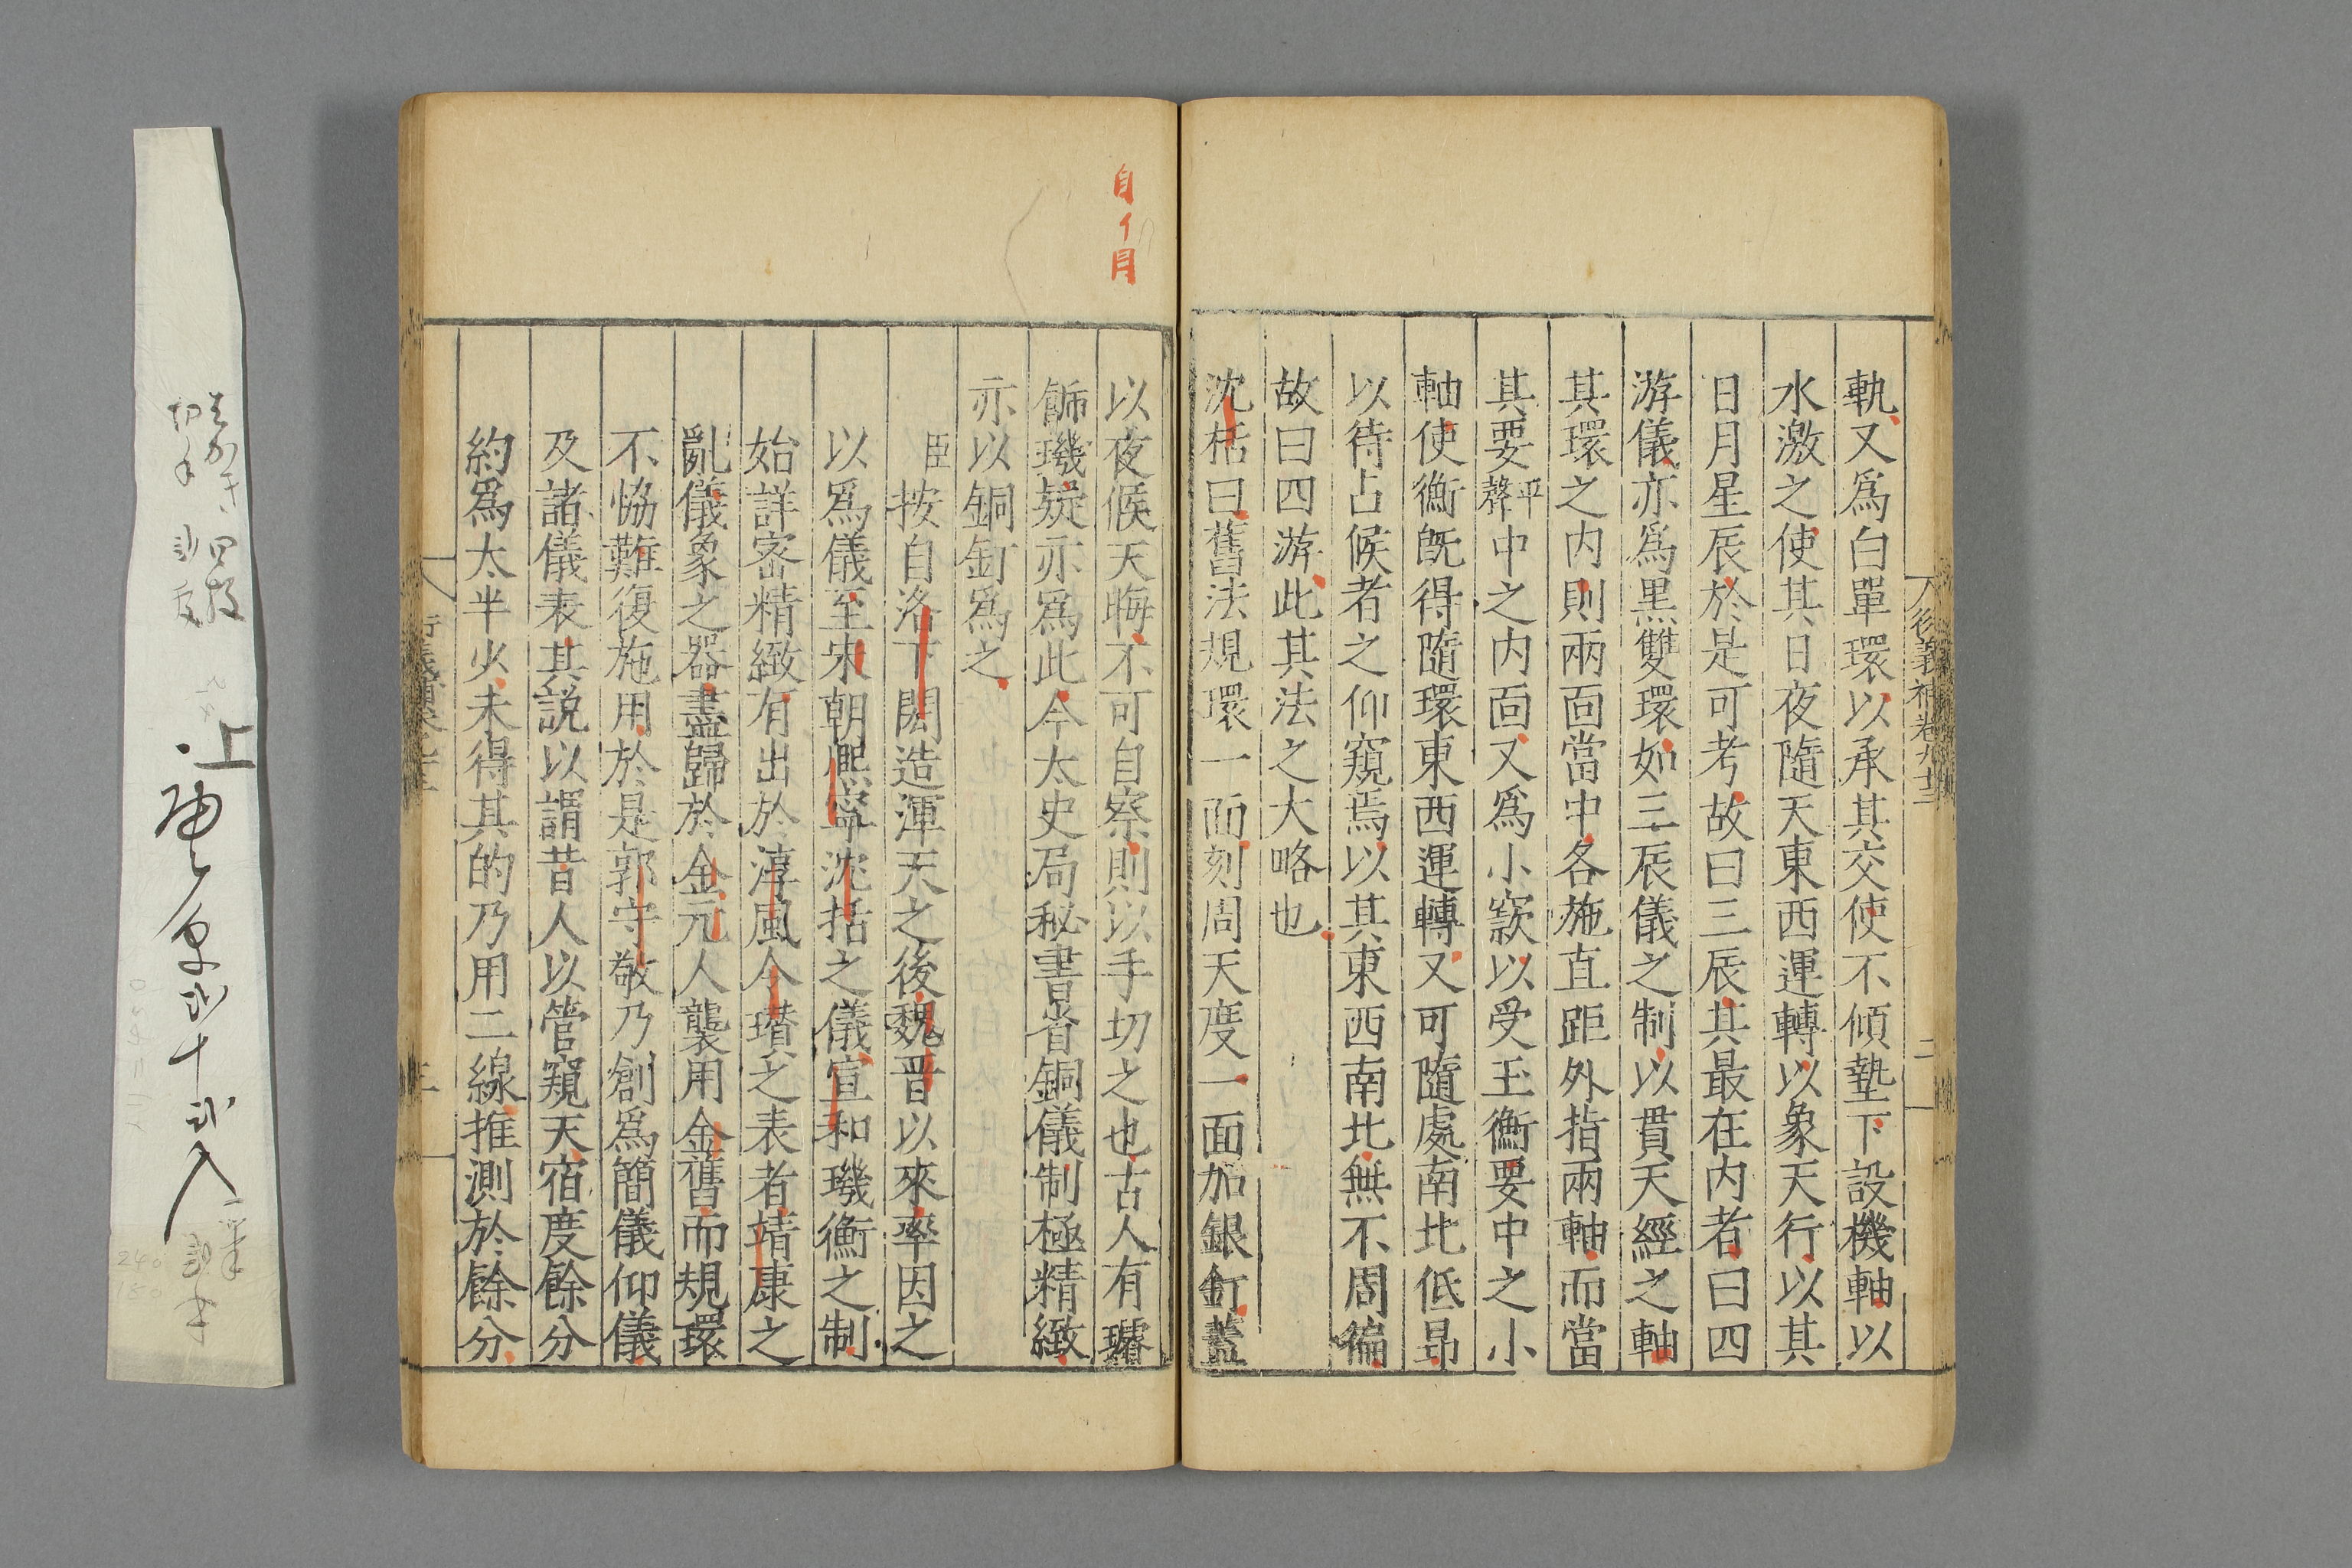 軌又爲白單環以承其交使不傾墊下設機軸以
水激之使其日夜隨天東西運轉以象天行以其
日月星辰於是可考故曰三辰其最在内者曰四
游儀亦爲黑雙環如三辰儀之制以貫天經之軸
其環之内則兩面當中各施直距外指兩軸而當
其要平聲中之内面又爲小窽以受玉衡要中之小
軸使衡旣得隨環東西運轉又可隨處南北低昻
以待占候者之仰窺焉以其東西南北無不周徧
故曰四游此其法之大略也
沈括曰舊法規環一面刻周天度一面加銀釘蓋
以夜候天晦不可自察則以手切之也古人有璿
飾璣疑亦爲此今太史局秘書省銅儀制極精緻
亦以銅釘爲之
臣按自洛下閎造渾天之後魏晋以來率因之
以爲儀至宋朝熈寧沈括之儀宣和璣衡之制
始詳宻精緻有出於淳風令瓚之表者靖康之
亂儀象之器盡歸於金元人襲用金舊而規環
不恊難復施用於是郭守敬乃創爲簡儀仰儀
及諸儀表其説以謂昔人以管窺天宿度餘分
約爲太半少未得其的乃用二線推測於餘分
自イ目
三